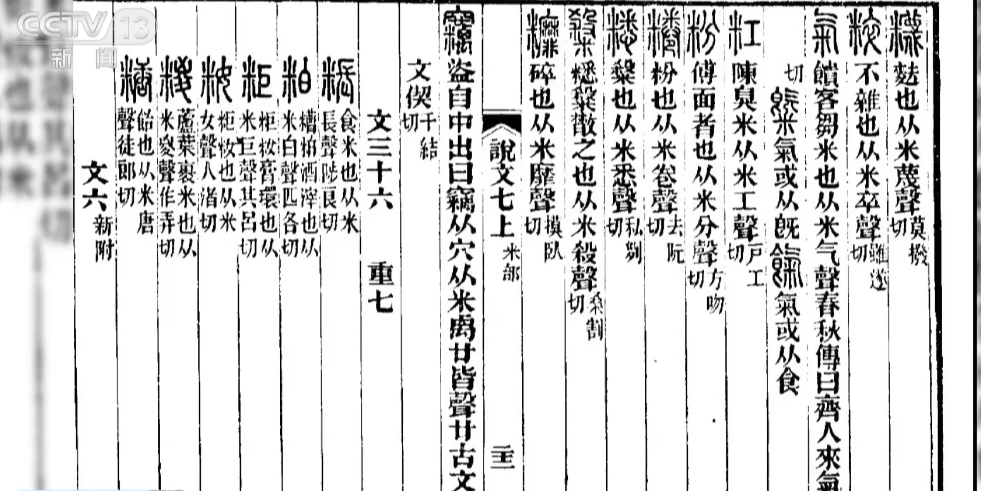 CCTV 13
新闻
麩也从米蔑聲莫撥切
粹不雜也从米卒聲雖遂切
氣饋客芻米也从米气聲春秋傳曰齊人來氣
切 䊠氣或从旣 餼氣或从食
粠陳臭米从米工聲戶工切
粉傅面者也从米分聲方吻切
䊎粉也从米卷聲去阮切
也从米悉聲私列切
散之也从米殺聲桑割切
碎也从米靡聲摸臥切
說文七上 米部 二十二
竊盜自中出曰竊从穴从米禼廿皆聲廿古文
文偰千結切
文三十六 重七
粻食米也从米長聲陟良切
粕糟粕酒滓也从米白聲匹各切
粔粔籹膏環也从米巨聲其呂切
籹粔籹也从米女聲人渚切
糉蘆葉裹米也从米㚇聲作弄切
糖飴也从米唐聲徒郎切
文六 新附